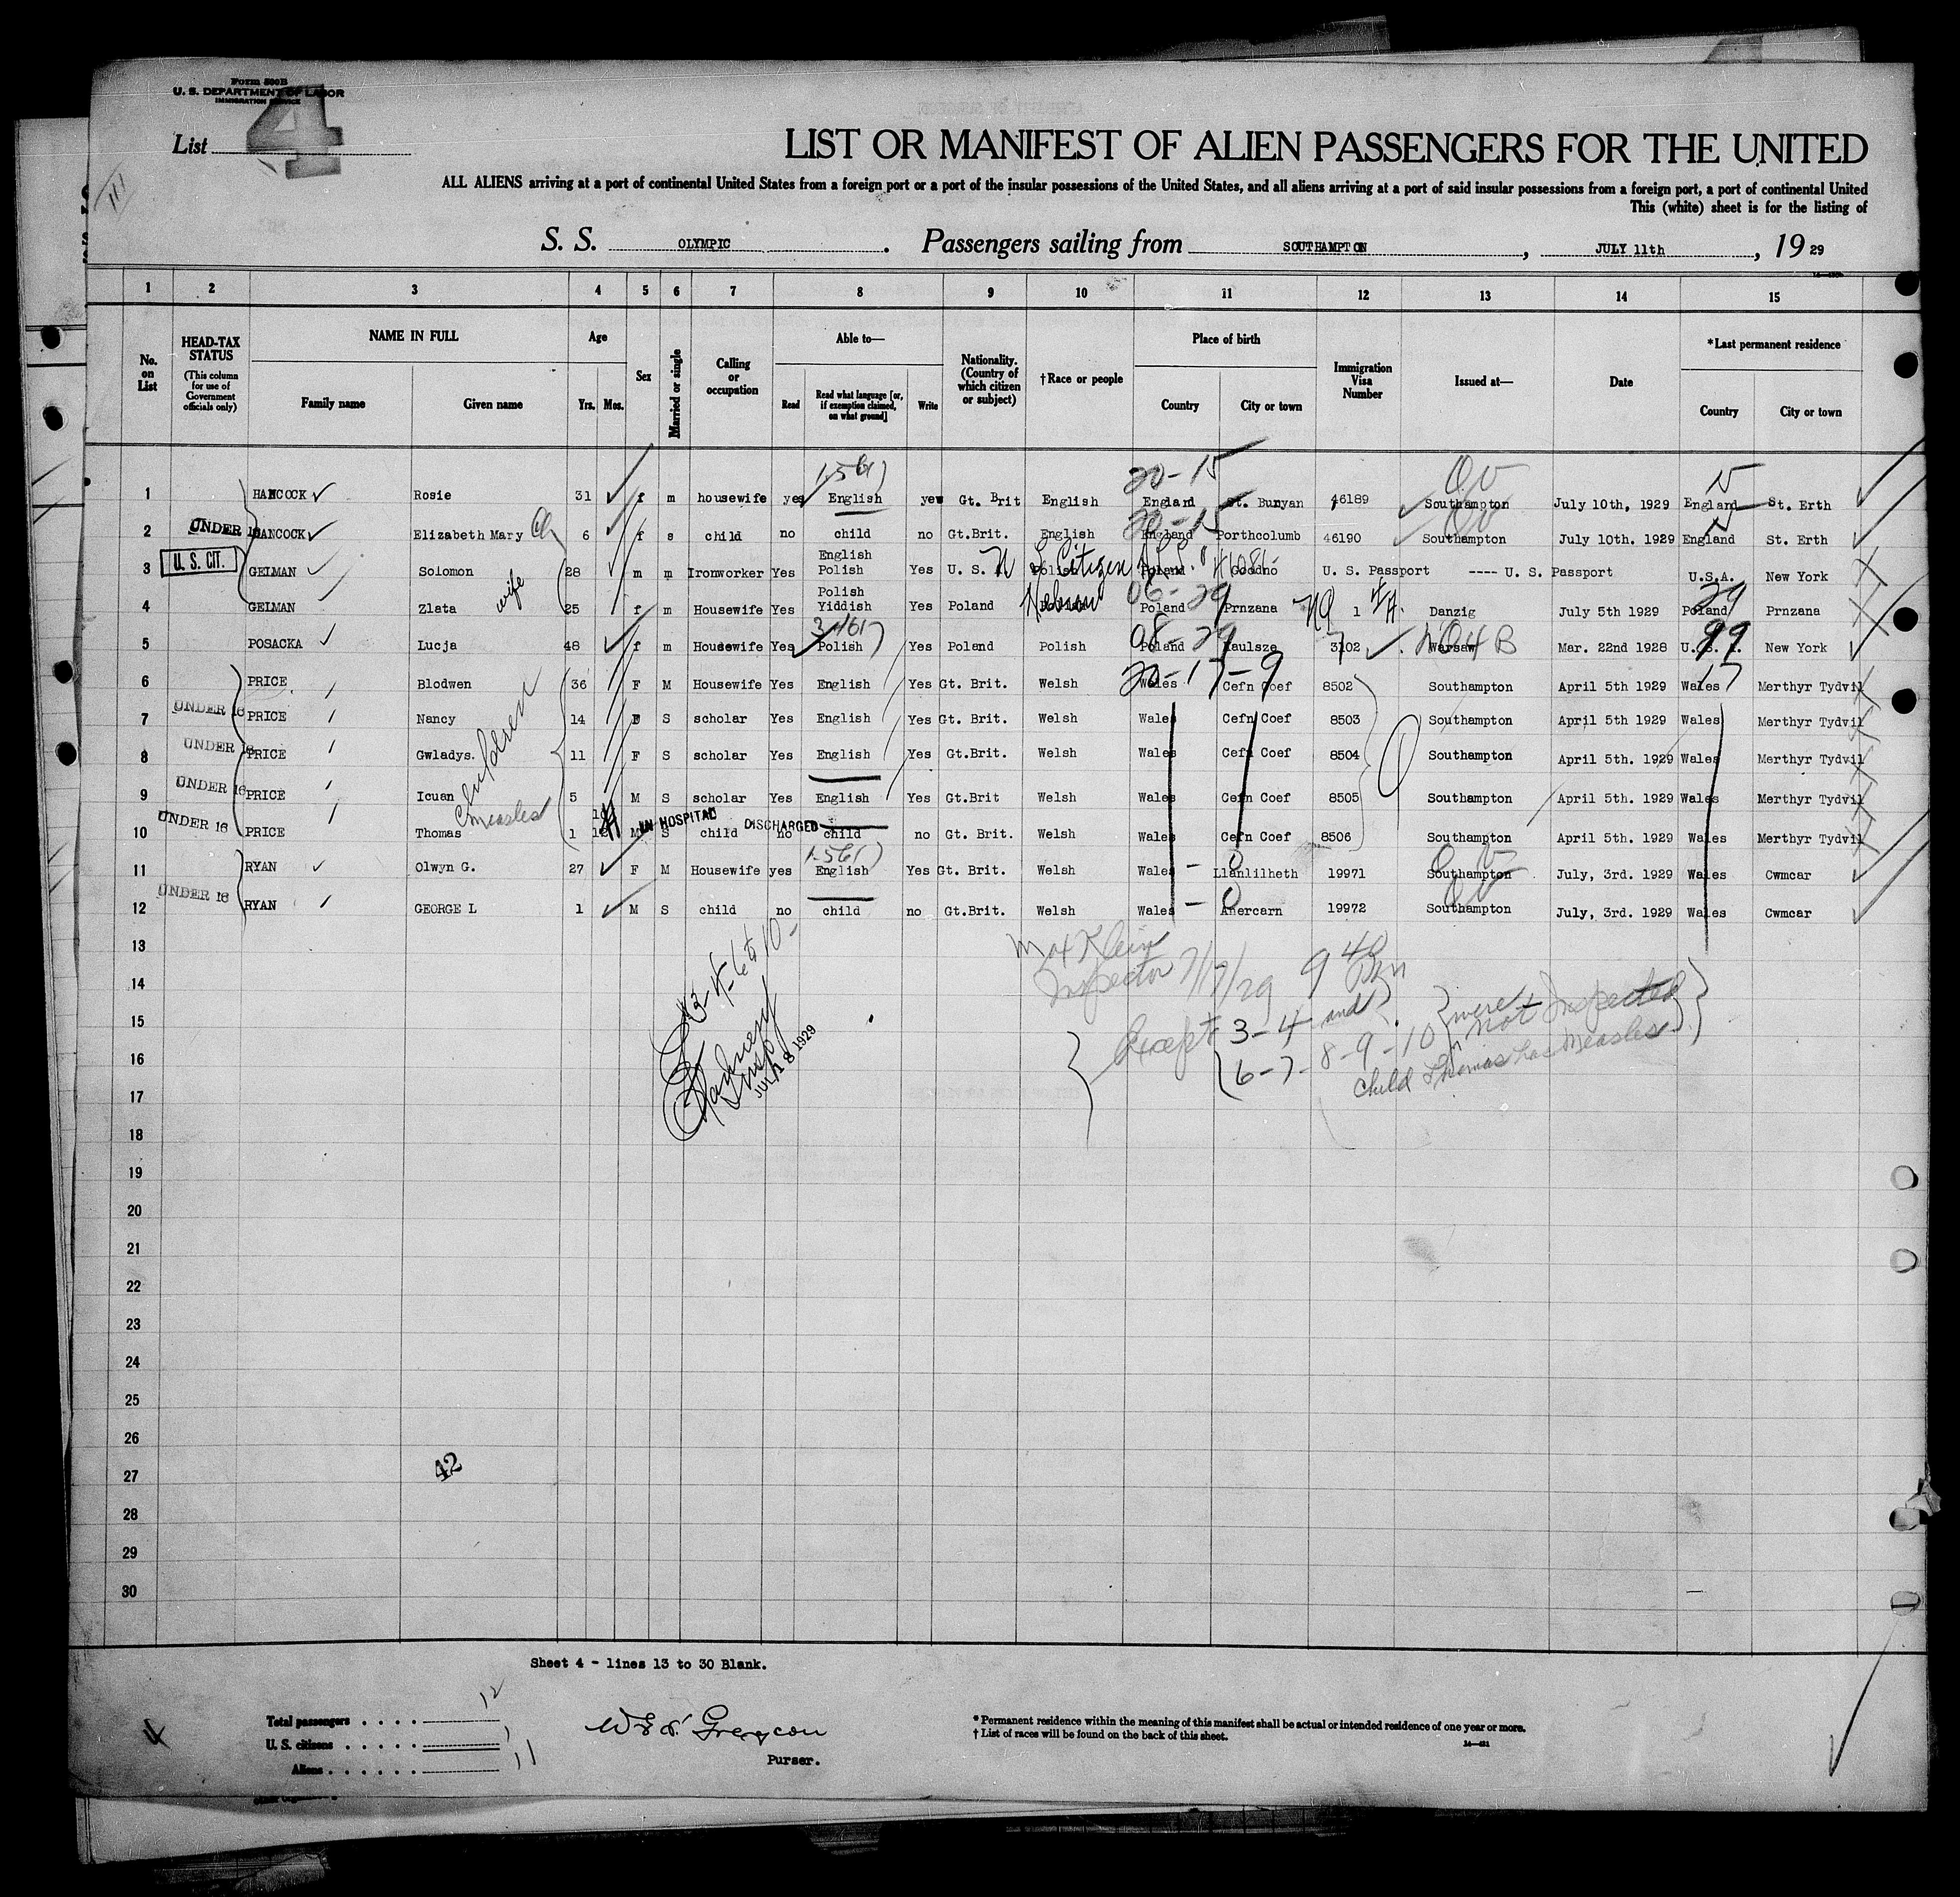 Form 500B
U. S. DEPARTMENT OF LABOR
IMMIGRATION SERVICE
List 4
LIST OR MANIFEST OF ALIEN PASSENGERS FOR THE UNITED
ALL ALIENS arriving at a port of continental United States from a foreign port or a port of the insular possessions of the United States, and all aliens arriving at a port of said insular possessions from a foreign port, a port of continental United
This (white) sheet is for the listing of
S. S. OLYMPIC . Passengers sailing from SOUTHAMPTON , JULY 11th , 19 29
1 2 3 4 5 6 7 8 9 10 11 12 13 14 15
No. on List
HEAD-TAX STATUS (This column for use of Government officials only)
NAME IN FULL Family name Given name
Age Yrs. Mos.
Sex
Married or single
Calling or occupation
Able to— Read Read what language [or, if exemption claimed, on what ground] Write
Nationality. (Country of which citizen or subject)
†Race or people
Place of birth Country City or town
Immigration Visa Number
Issued at—
Date
*Last permanent residence Country City or town
1561) 20-15 15
1 HANCOCK Rosie 31 f m housewife yes English yes Gt. Brit English England St. Bunyan 46189 Southampton July 10th, 1929 England St. Erth
20-15
2 UNDER 16 HANCOCK Elizabeth Mary 6 f s child no child no Gt.Brit. English England Porthcolumb 46190 Southampton July 10th. 1929 England St. Erth
3 U. S. CIT. GELMAN Solomon 28 m m Ironworker Yes English Polish Yes U. S. Polish Citizen Poland Goodno U. S. Passport ---- U. S. Passport U.S.A. New York
4 GELMAN Zlata wife 25 f m Housewife Yes Polish Yiddish Yes Poland Hebrew 06-29 Poland Prnzana 1 Danzig July 5th 1929 Poland 29 Prnzana
5 POSACKA Lucja 48 f m Housewife Yes Polish Yes Poland Polish 08-29 Poland Kaulsze 3102 Warsaw Mar. 22nd 1928 U.S.A. 99 New York
6 PRICE Blodwen 36 F M Housewife Yes English Yes Gt. Brit. Welsh 20-17-9 Wales Cefn Coef 8502 Southampton April 5th 1929 Wales 17 Merthyr Tydvil
7 UNDER 16 PRICE Nancy 14 F S scholar Yes English Yes Gt. Brit. Welsh Wales Cefn Coef 8503 Southampton April 5th 1929 Wales Merthyr Tydvil
8 UNDER 16 PRICE Gwladys. children 11 F S scholar Yes English Yes Gt.Brit. Welsh Wales Cefn Coef 8504 Southampton April 5th. 1929 Wales Merthyr Tydvil
9 UNDER 16 PRICE Icuan 5 M S scholar Yes English Yes Gt.Brit Welsh Wales Cefn Coef 8505 Southampton April 5th. 1929 Wales Merthyr Tydvil
10 UNDER 16 PRICE Thomas measles 1 M S IN HOSPITAL child DISCHARGED no child no Gt. Brit. Welsh Wales Cefn Coef 8506 Southampton April 5th. 1929 Wales Merthyr Tydvil
1-561)
11 RYAN Olwyn G. 27 F M Housewife yes English Yes Gt. Brit. Welsh Wales Llanlilheth 19971 Southampton July, 3rd. 1929 Wales Cwmcar
12 UNDER 16 RYAN GEORGE L 1 M S child no child no Gt.Brit. Welsh Wales Abercarn 19972 Southampton July, 3rd. 1929 Wales Cwmcar
13
Max Klein
14
Inspector 7/17/29 9 40 Pm
15
Except 3-4 and were not Inspected
16
6-7-8-9-10 child Thomas has measles
Insp
JUL 18 1929
17
18
19
20
21
22
23
24
25
26
27
42
28
29
30
Sheet 4 - lines 13 to 30 Blank.
Total passengers . . . . 12
U. S. citizens . . . . . 1
Aliens . . . . . . 11
Purser.
* Permanent residence within the meaning of this manifest shall be actual or intended residence of one year or more.
† List of races will be found on the back of this sheet.